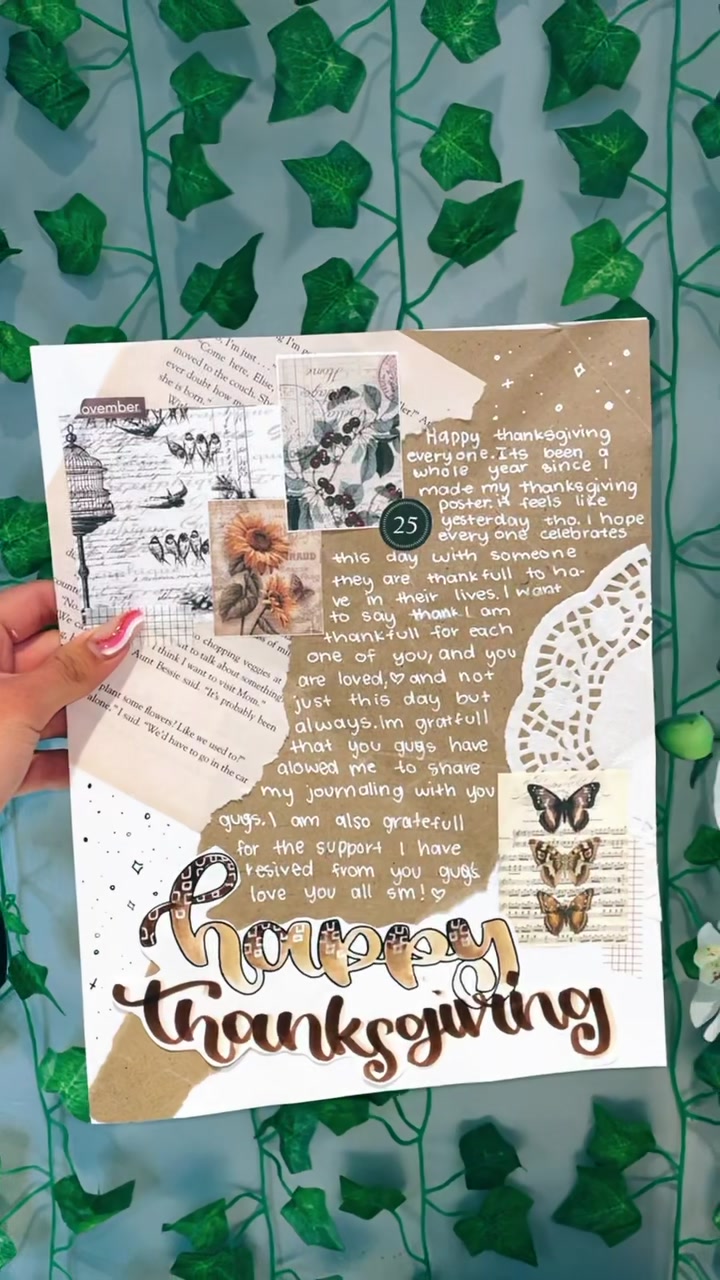 I'm just . . .
"Come here, Elise,
moved to the couch. Sh
ever doubt how me
she is born."
ovember.
25
Happy thanksgiving
everyone. Its been a
whole year since I
made my thanksgiving
poster. it feels like
yesterday tho. I hope
every one celebrates
this day with someone
they are thankfull to ha-
ve in their lives. I want
to say thank. I am
thankfull for each
one of you, and you
are loved,♡ and not
just this day but
always. Im gratfull
that you guys have
alowed me to share
my journaling with you
guys. I am also gratefull
for the support I have
resived from you guys
love you all sm!♡
o chopping veggies at
nt to talk about something
I think I want to visit Mom."
Aunt Bessie said. "It's probably been
plant some flowers? Like we used to?"
alone," I said. "We'd have to go in the car
happy
thanksgiving